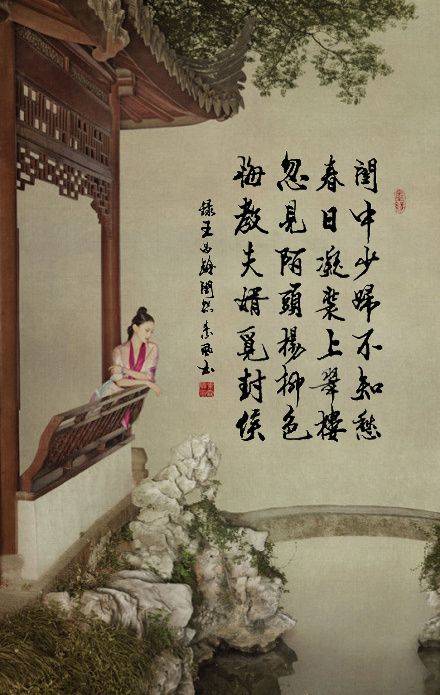 閨中少婦不知愁
春日凝裝上翠樓
忽見陌頭楊柳色
悔教夫婿覓封侯
錄王昌齡閨怨